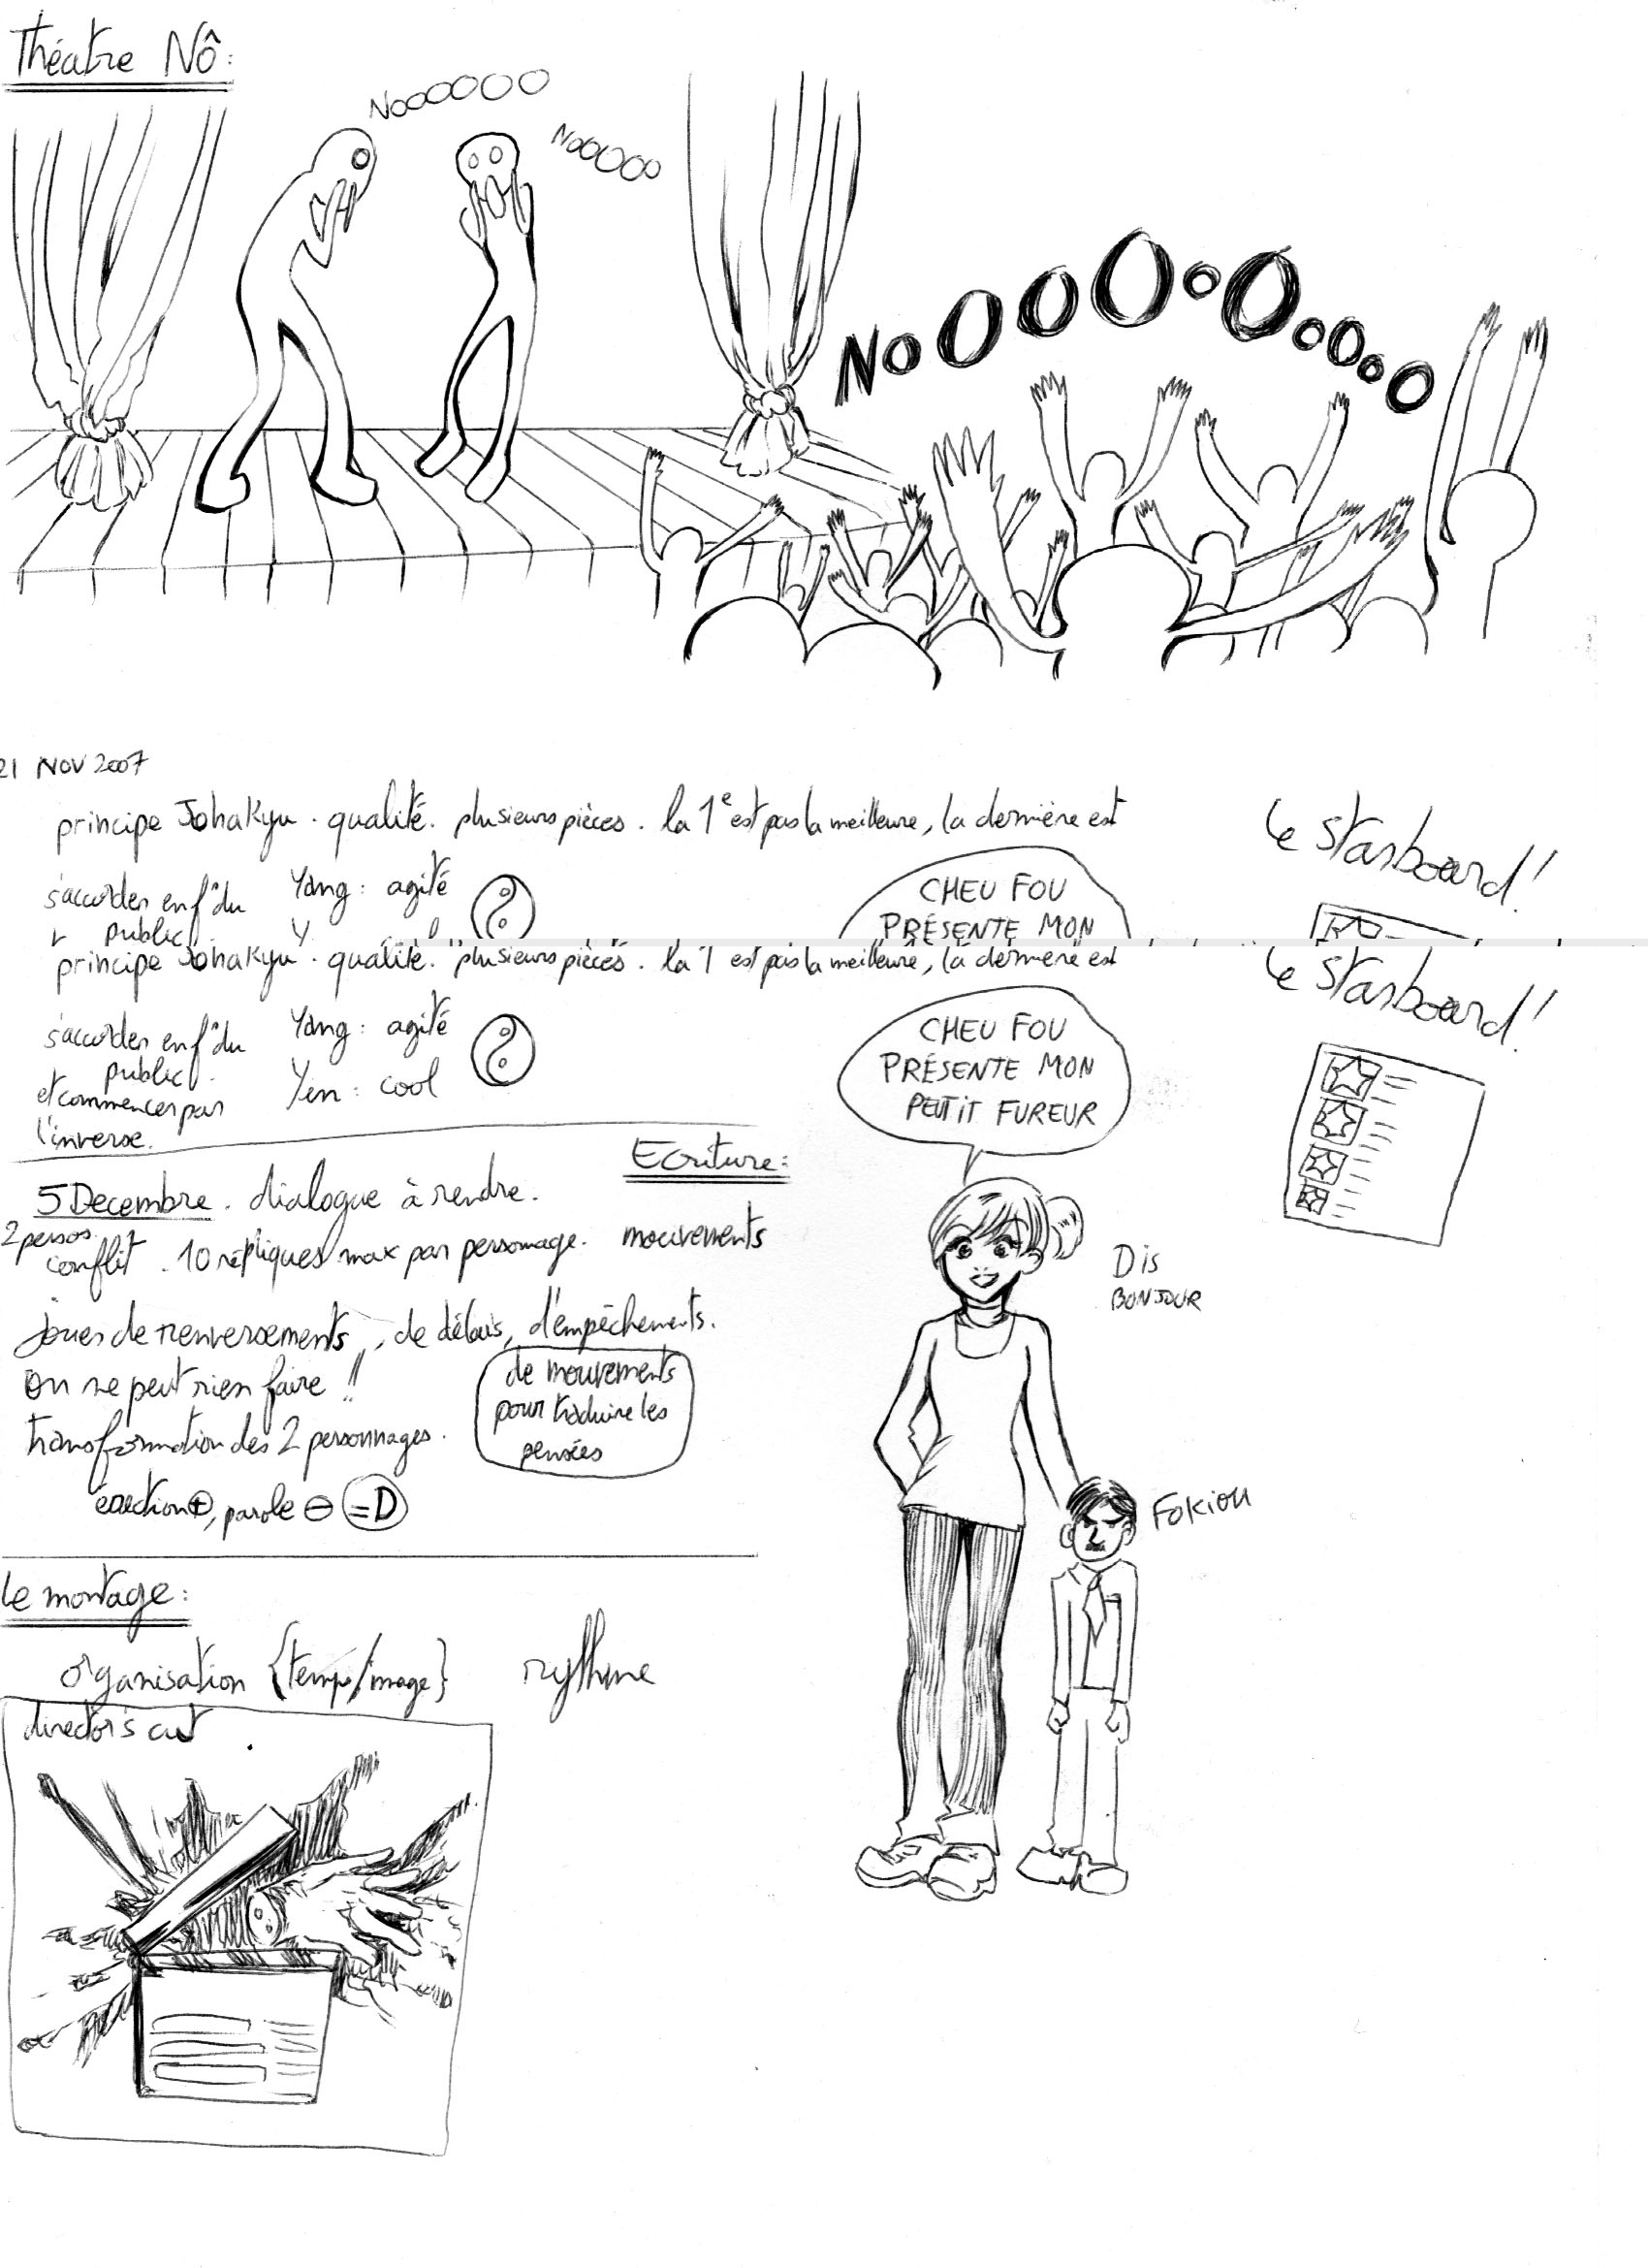 Théatre Nô:
NOOOOOOO
NOOOOOO
NOOOOOOOOOO
21 NOV 2007
principe Johakyu. qualité. plusieurs pièces. la 1e est pas la meilleure, la dernière est
le starboard!
s'accorder en f° du
public
Yang: agité
CHEU FOU
PRÉSENTE MON
principe Johakyu. qualité. plusieurs pièces. la 1 est pas la meilleure, la dernière est
le starboard!
s'accorder en f° du
public.
et commencer par
l'inverse.
Yang: agité
Yen: cool
CHEU FOU
PRÉSENTE MON
PEUTIT FUREUR
Ecriture:
5 Decembre. dialogue à rendre.
2 persos.
conflit. 10 répliques max par personnage. mouvements
jouer de renversements, de délais, d'empêchements.
on ne peut rien faire!!
de mouvements
pour traduire les
pensées
transformation des 2 personnages.
parole ⊖ =D
Dis
BONJOUR
Fokiou
le montage:
organisation {temps/image} rythme
director's cut